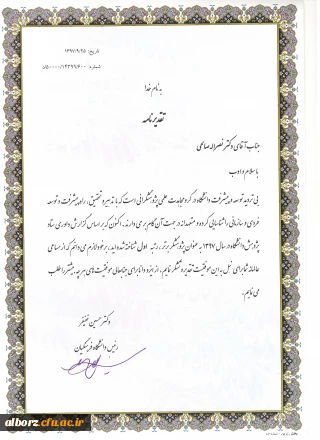 تاریخ: ۱۳۹۷/۹/۲۵
شماره: ۵۰۰۰۰/۱۴۳۹۹/۶۰۰/د
به نام خدا
تقدیرنامه
جناب آقای دکتر نصراله صالحی
با سلام و ادب
بی تردید توسعه و پیشرفت دانشگاه در گرو مجاهدت علمی پژوهشگرانی است که با تدبیر و تحقیق، راه پیشرفت و توسعه
فردی و سازمانی را شناسایی کرده و متعهدانه در جهت آن گام بر می دارند. اکنون که بر اساس گزارش داوری ستاد
پژوهش دانشگاه در سال ۱۳۹۷ به عنوان پژوهشگر برتر، رتبه اول شناخته شده اید، بر خود لازم می دانم که از مساعی
عالمانه شما برای نیل به این موفقیت تقدیر و تشکر نمایم. از ایزد دانا برای جنابعالی موفقیت های هر چه بیشتر را طلب
می نمایم.
دکتر حسین خنیفر
رئیس دانشگاه فرهنگیان
alborz.cfu.ac.ir